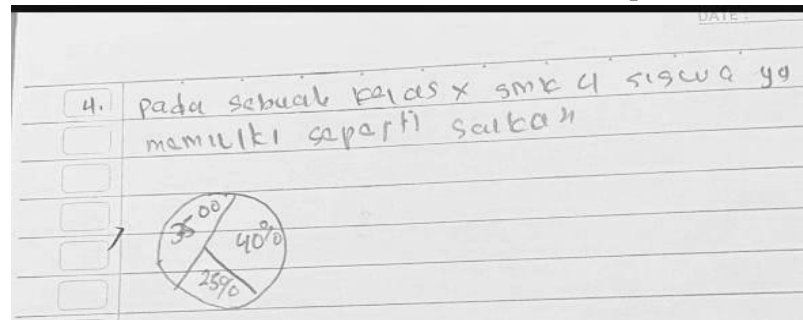 DATE :
4. pada sebuah kelas x smk 4 siswa yg
memiliki seperti saikan
35 00
40%
25%